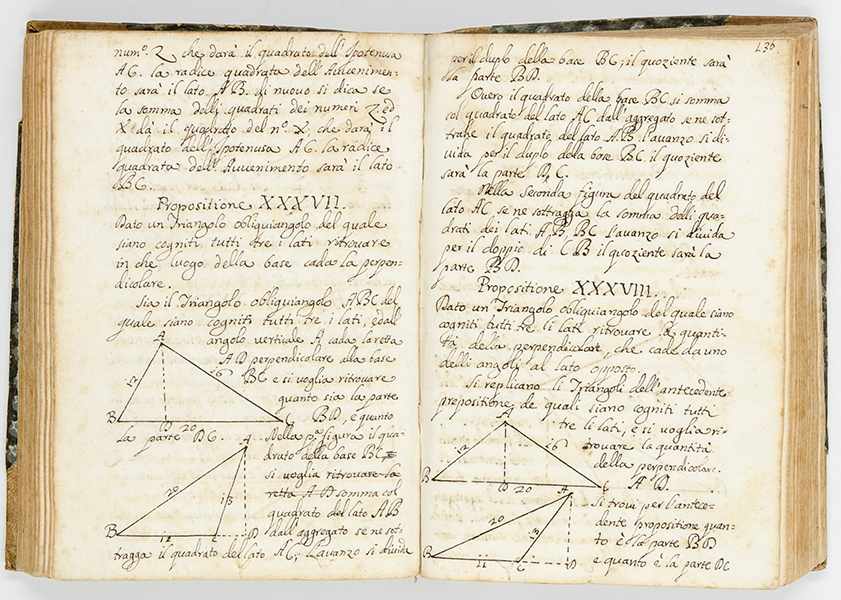 num.º Z che darà il quadrato dell'Ipotenusa
AC. la radice quadrata dell'Auvenimen-
to sarà il lato AB. di nuouo si dica se
la somma delli quadrati dei numeri Z ed
X dà il quadrato del n.º X. che darà il
quadrato dell'Ipotenusa AC. la radice
quadrata dell'Auvenimento sarà il lato
BC.
Propositione XXXVII.
Dato un Triangolo obliquiangolo del quale
siano cogniti tutti tre i lati ritrouare
in che luogo della base cada la perpen=
dicolare.
Sia il Triangolo obliquiangolo ABC del
quale siano cogniti tutti tre i lati, e dall'
angolo verticale A cada la retta
AD perpendicolare alla base
BC e si voglia ritrouare
quanto sia la parte
BD, e quanto
la parte DC.
A
12
16
B
D
20
C
Nella p.ª figura il qua=
drato della base BC
si voglia ritrouare la
retta AD somma col
quadrato del lato AB
dall'aggregato se ne sot=
tragga il quadrato del lato AC; l'auanzo si diuida
A
20
13
B
11
C
D
136
per il duplo della base BC; il quoziente sarà
la parte BD.
Ouero il quadrato della base BC si somma
col quadrato del lato AC dall'aggregato se ne sot=
trahe il quadrato del lato AB l'auanzo si di=
uida per il duplo della base BC il quoziente
sarà la parte DC.
Nella seconda figura del quadrato del
lato AC se ne sottragga la somma delli qua=
drati dei lati AB, BC l'auanzo si diuida
per il doppio di CB il quoziente sarà la
parte BD.
Propositione XXXVIII.
Dato un Triangolo obliquiangolo del quale siano
cogniti tutti tre li lati ritrouare la quanti=
tà della perpendicolare, che cade da uno
delli angoli al lato opposto.
Si replicano li Triangoli dell'antecedente
propositione de quali siano cogniti tutti
tre li lati, e si voglia ri=
trouare la quantità
della perpendicolare
AD.
A
12
16
B
D
20
C
Si troui per l'antece=
dente propositione quan=
to è la parte BD
e quanto è la parte DC
A
20
13
B
11
C
D